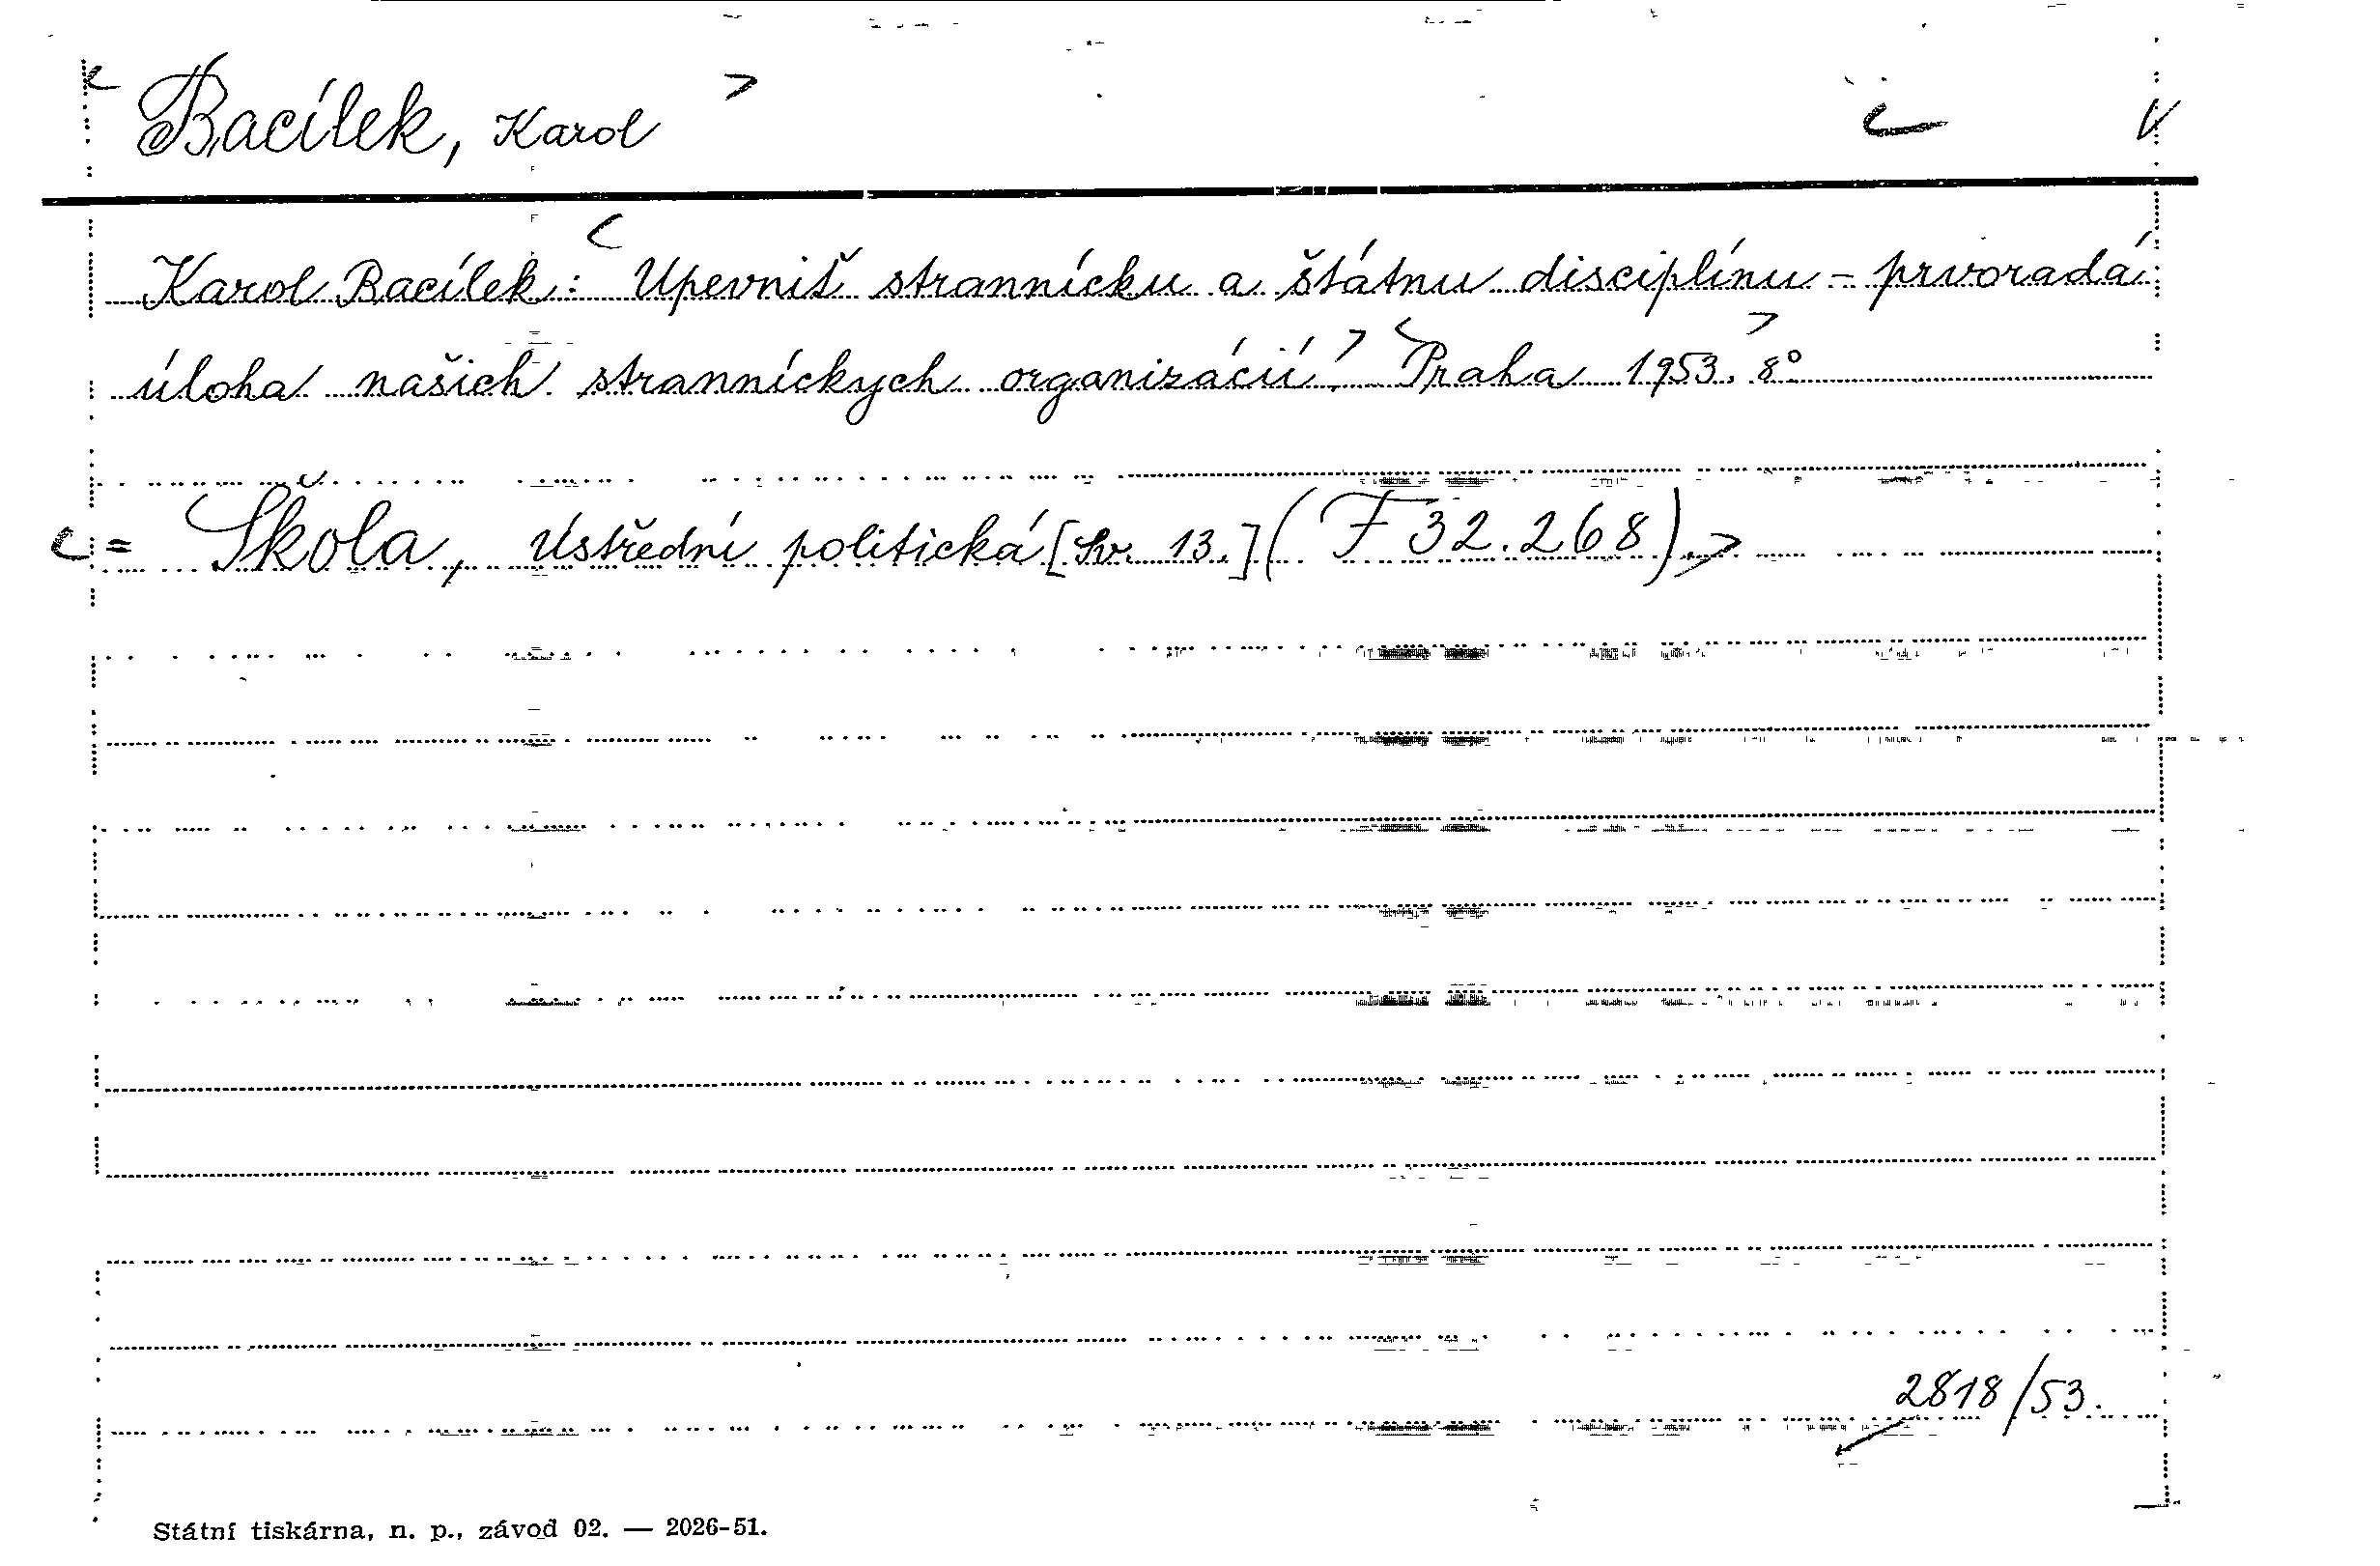 Bacílek, Karol
Karol Bacílek: Upevniť strannícku a štátnu disciplínu - prvoradá
úloha našich stranníckych organizácií. Praha 1953. 8°
= Škola, Ústřední politická [Sv. 13.] (F 32.268).
2818/53.
Státní tiskárna, n. p., závod 02. — 2026-51.